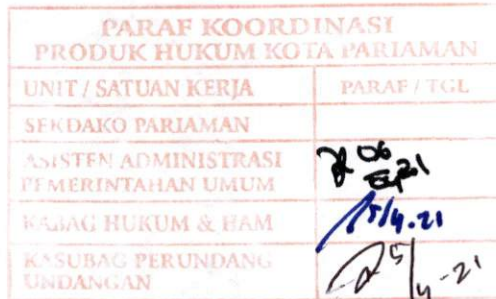 PARAF KOORDINASI
PRODUK HUKUM KOTA PARIAMAN
UNIT / SATUAN KERJA PARAF / TGL
SEKDAKO PARIAMAN
ASISTEN ADMINISTRASI
PEMERINTAHAN UMUM
KABAG HUKUM & HAM 5/4.21
KASUBAG PERUNDANG
UNDANGAN 5/4-21